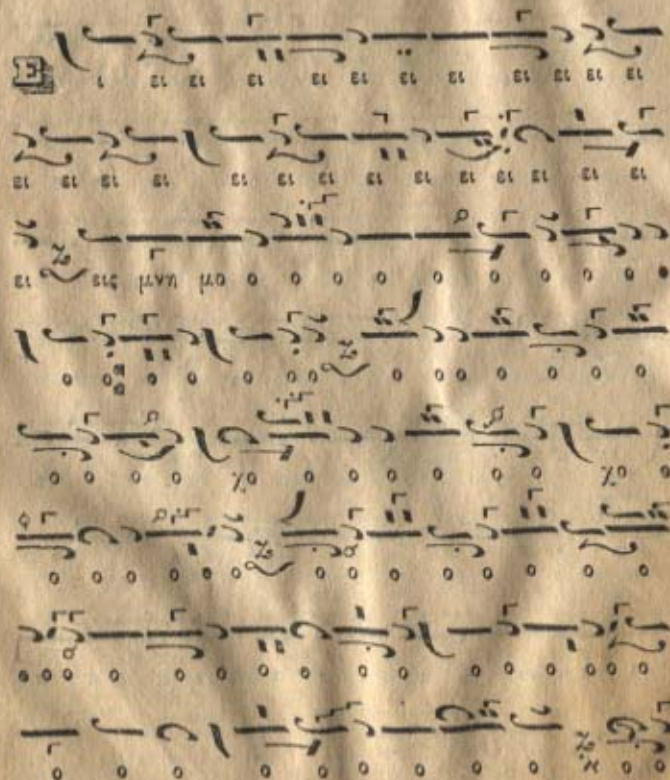 Ε ι ει ει ει ει ει ει ει ει ει ει ει
ει ει ει ει ει ει ει ει ει ει ει ει ει ει
ει εις μνη μο ο ο ο ο ο ο ο ο ο ο ο
ο ο ο ο ο ο ο ο ο ο ο ο ο ο
ο ο ο ο χο ο ο ο ο ο ο χο ο
ο ο ο ο ο ο ο ο ο ο ο ο ο ο
ο ο ο ο ο ο ο ο ο ο ο ο ο ο ο ο
ο ο ο ο ο ο ο ο ο ο ο ο ο